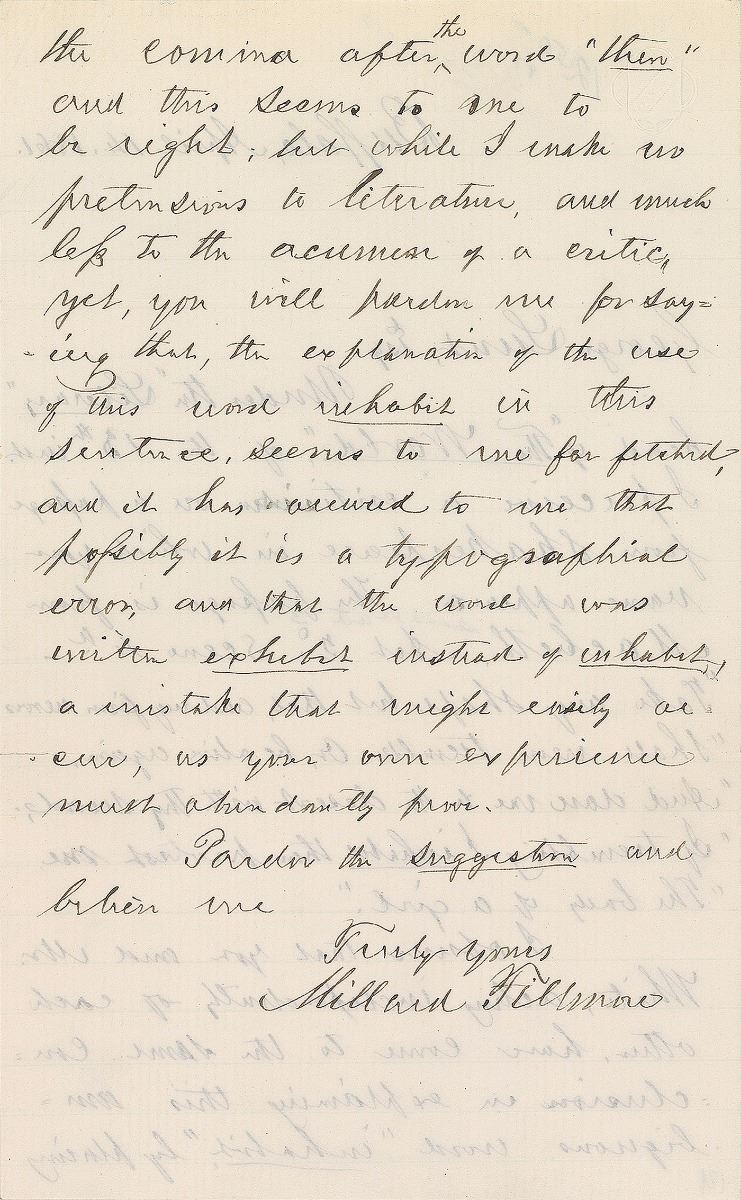 the comma after the word "then"
and this seems to me to
be right; but while I make no
pretensions to literature, and much
less to the acumen of a critic,
yet, you will pardon me for say=
-ing that, the explanation of the use
of this word inhabit in this
sentence, seems to me far fetched,
and it has occured to me that
possibly it is a typographical
error, and that the word was
written exhibit instead of inhabit,
a mistake that might easily oc
cur, as your own experience
must abundantly prove.
Pardon the suggestion and
believe me
Truly yours
Millard Fillmore